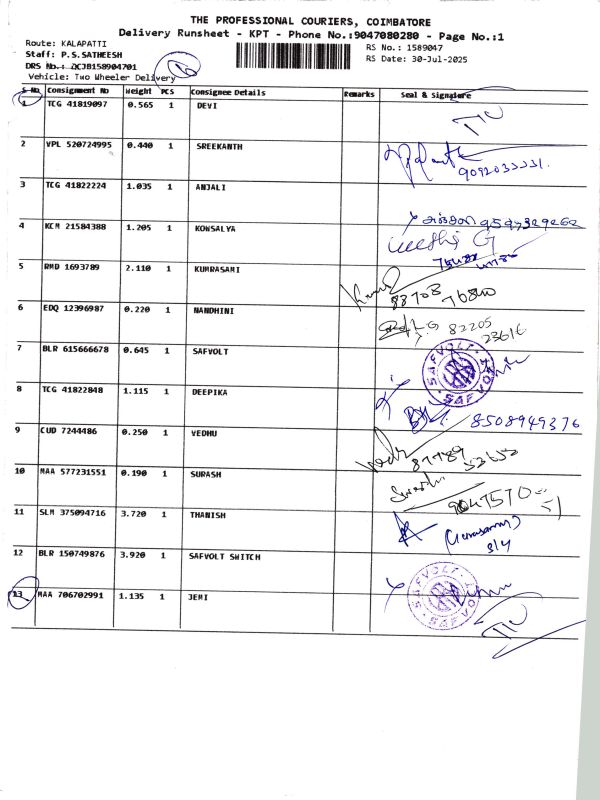 THE PROFESSIONAL COURIERS, COIMBATORE
Delivery Runsheet - KPT - Phone No.:9047080280 - Page No.:1
Route: KALAPATTI
RS No.: 1589047
Staff: P.S.SATHEESH
RS Date: 30-Jul-2025
DRS No.: QCJB158904701
Vehicle: Two Wheeler Delivery
S No Consignment No Weight PCS Consignee Details Remarks Seal & Signature
1 TCG 41819097 0.565 1 DEVI
2 VPL 520724995 0.440 1 SREEKANTH
9092033331.
3 TCG 41822224 1.035 1 ANJALI
4 KCM 21584388 1.205 1 KOWSALYA
5 RMD 1693789 2.110 1 KUMRASAMI
83708 76800
6 EDQ 12396987 0.220 1 NANDHINI
82205
23616
7 BLR 615666678 0.645 1 SAFVOLT
SAFVOLT SAFVOLT
8 TCG 41822848 1.115 1 DEEPIKA
8508949376
9 CUD 7244486 0.250 1 VEDHU
10 MAA 577231551 0.190 1 SURASH
11 SLM 375094716 3.720 1 THANISH
3/4
12 BLR 150749876 3.920 1 SAFVOLT SWITCH
SAFVOLT SAFVOLT
13 MAA 706702991 1.135 1 JEMI